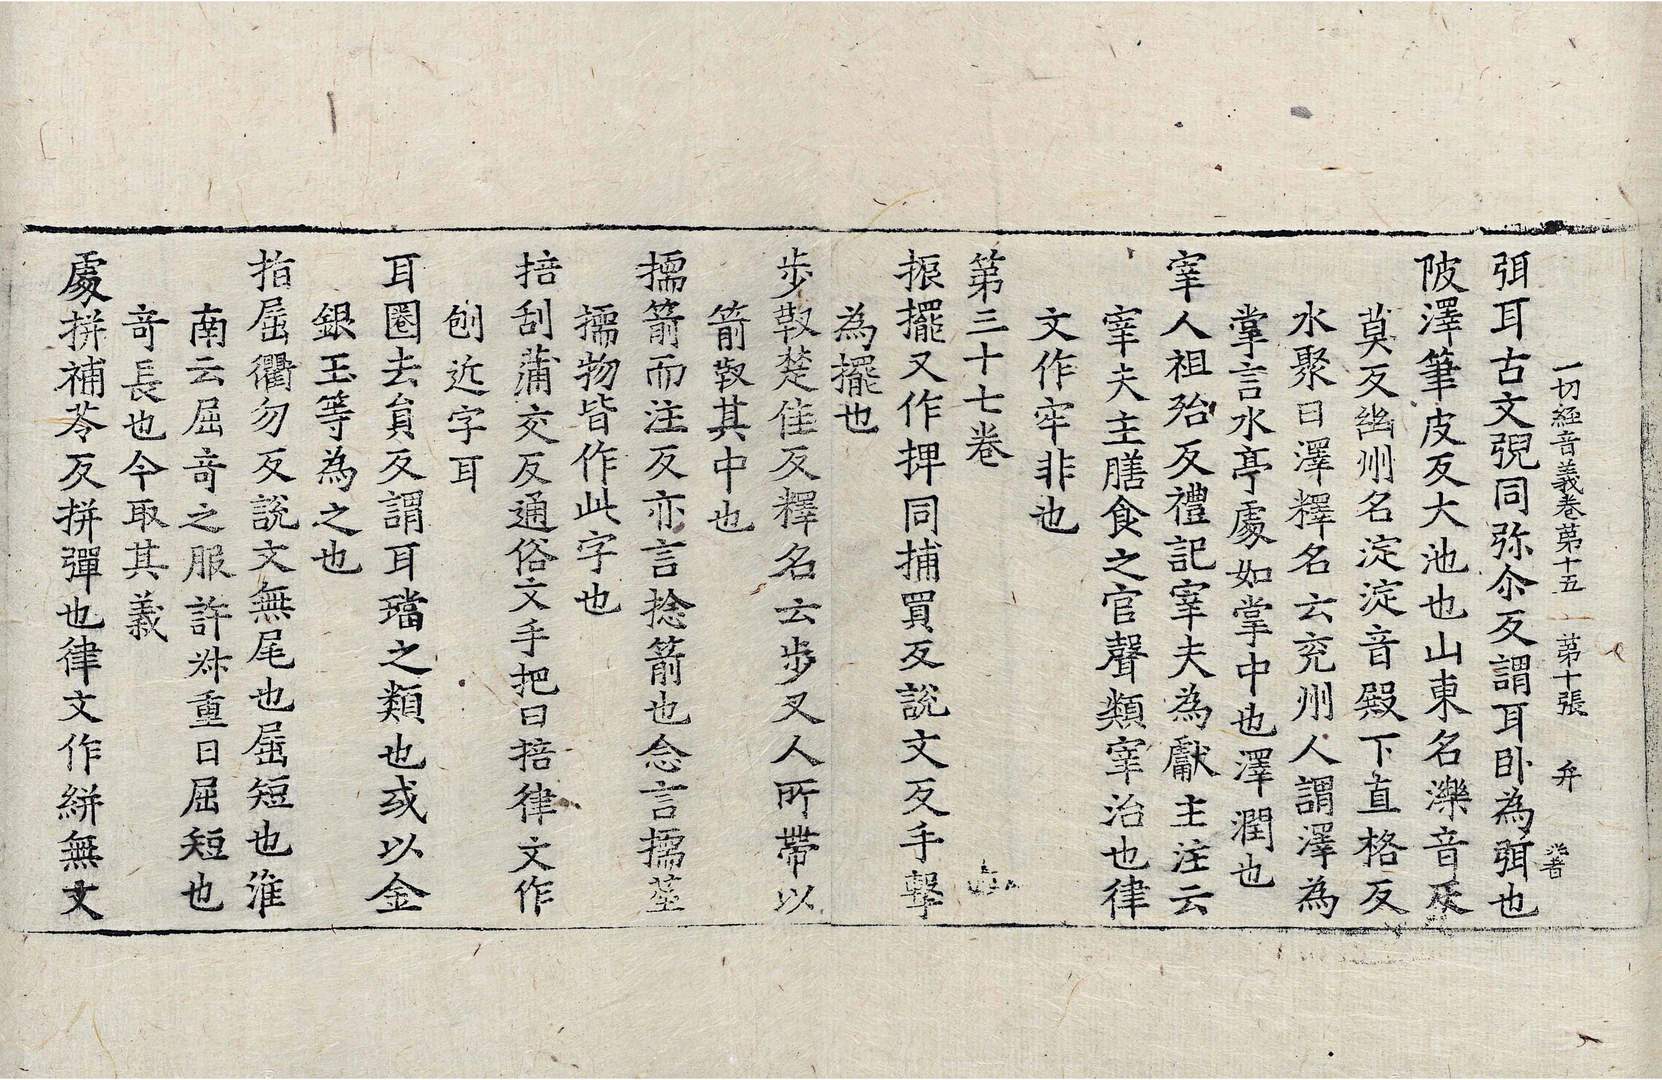 一切經音義卷第十五　第十張　弁
弭耳古文𢏺同弥尒反謂耳卧為弭也
陂澤筆皮反大池也山東名濼音
莫反幽州名淀淀音殿下直格反
水聚曰澤釋名云兖州人謂澤為
掌言水亭處如掌中也澤潤也
宰人祖殆反禮記宰夫為獻主注云
宰夫主膳食之官聲類宰治也律
文作牢非也
第三十七卷
振擺又作捭同捕買反說文反手擊
為擺也
步靫楚佳反釋名云步叉人所帶以
箭靫其中也
擩箭而注反亦言捻箭也念言擩莝
擩物皆作此字也
掊刮蒲交反通俗文手把曰掊律文作
刨近字耳
耳圈去貟反謂耳璫之類也或以金
銀玉等為之也
指屈衢勿反說文無尾也屈短也淮
南云屈奇之服許叔重曰屈短也
奇長也今取其義
處拼補苓反拼彈也律文作絣無文